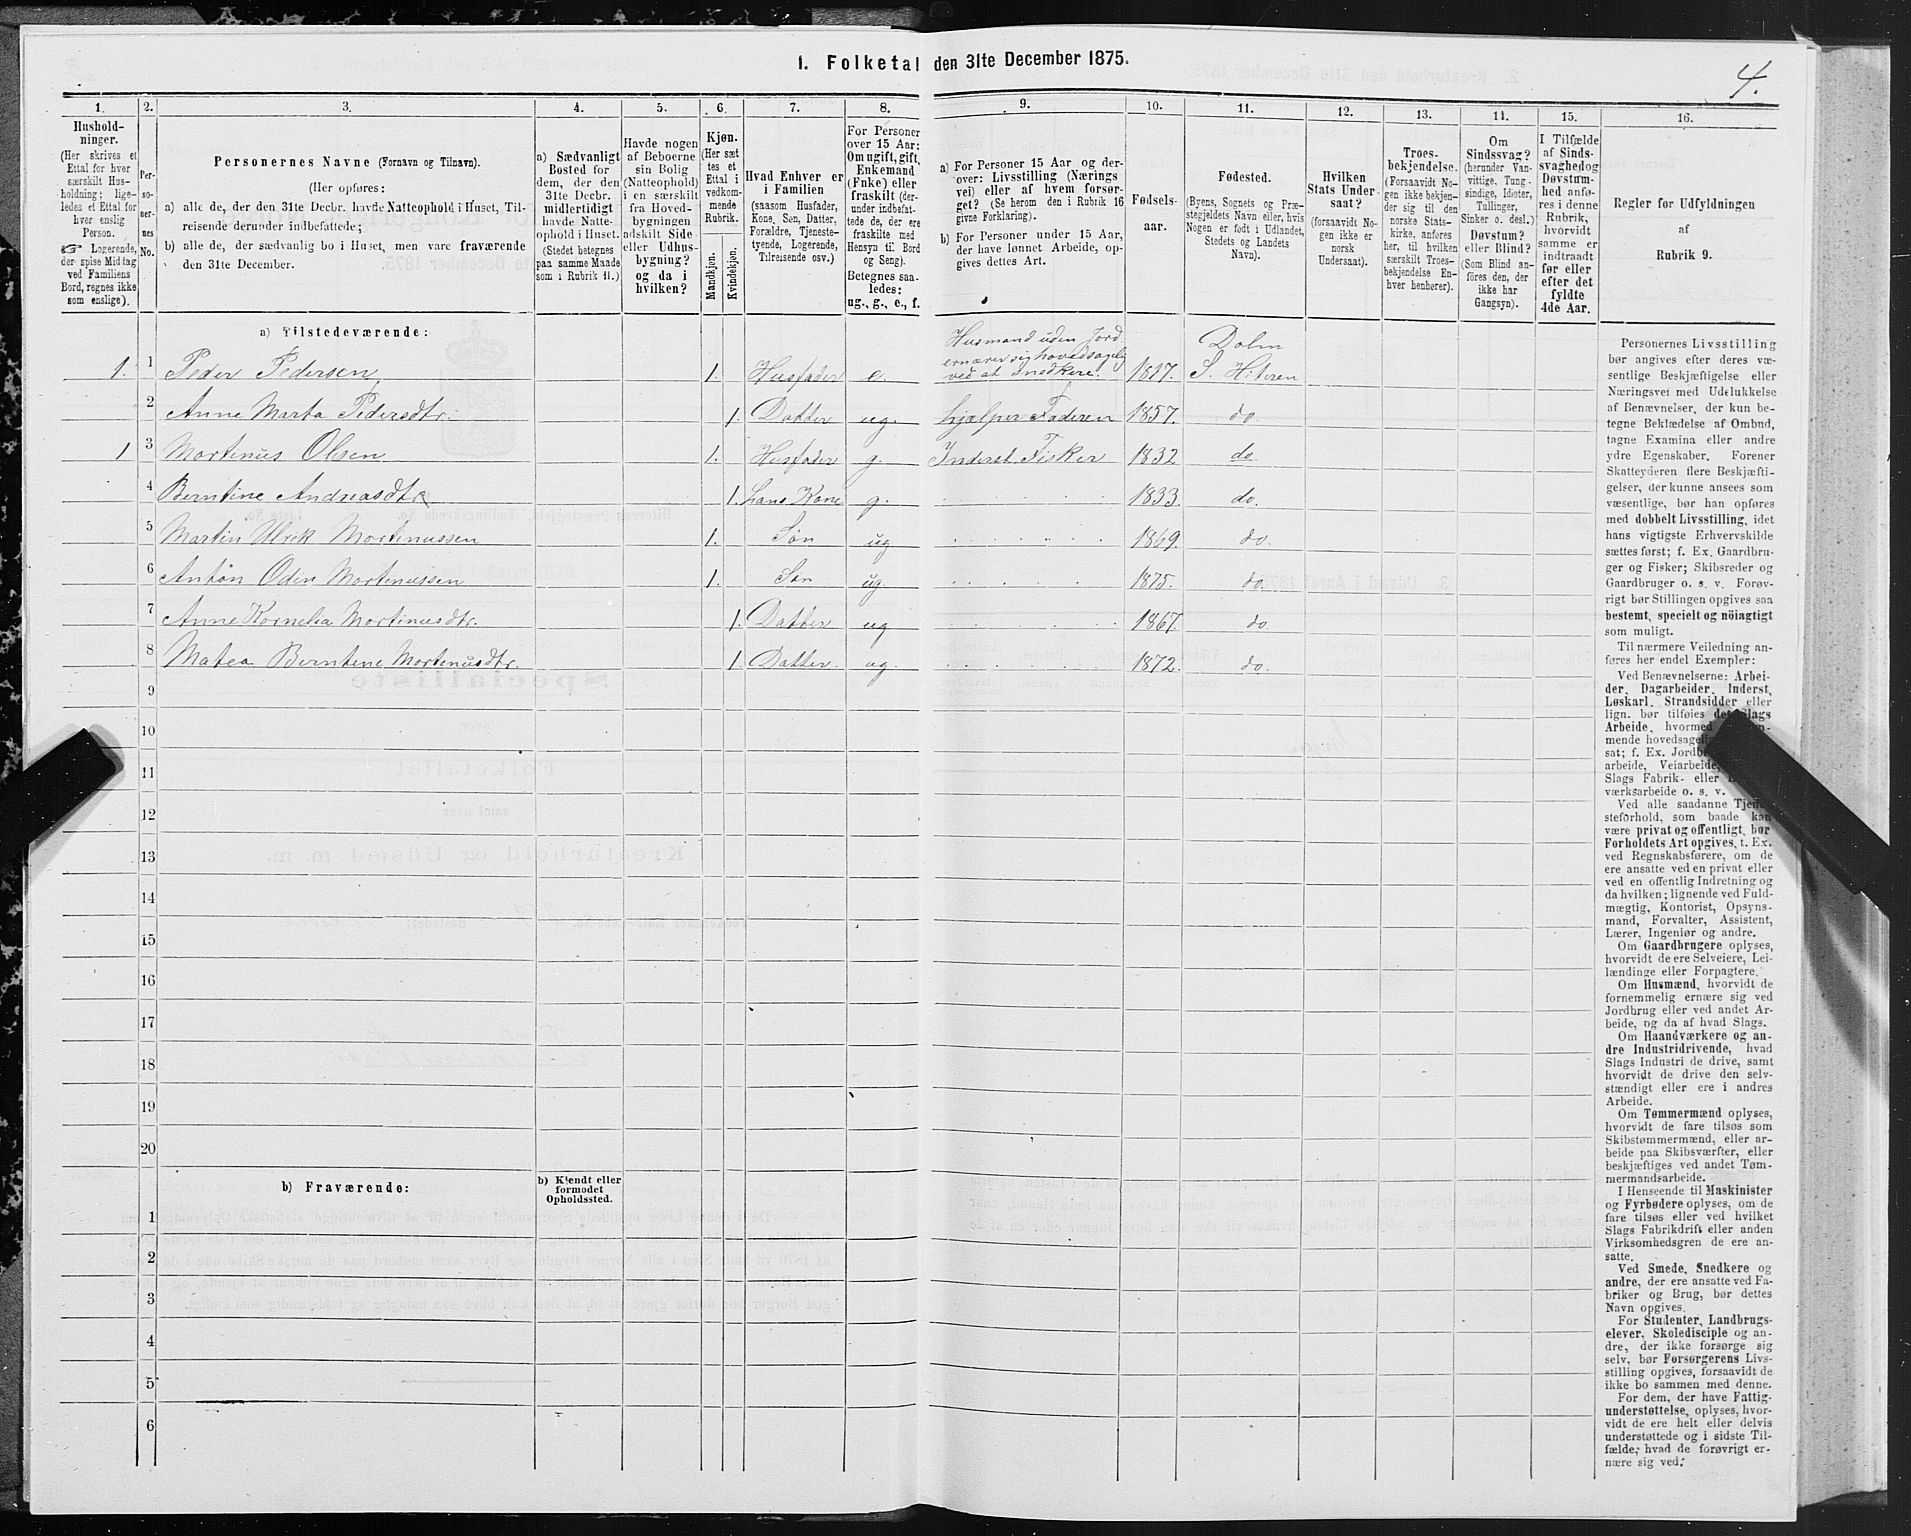 1. Folketal den 31te December 1875.
4.
1. 2. 3. 4. 5. 6. 7. 8. 9. 10. 11. 12. 13. 14. 15. 16.
Hushold-
ninger.
(Her skrives et
Ettal for hver
særskilt Hus-
holdning; lige-
ledes et Ettal for
hver enslig
Person.
☞ Logerende,
der spise Middag
ved Familiens
Bord, regnes ikke
som enslige).
Per-
so-
ner-
nes
No.
Personernes Navne (Fornavn og Tilnavn).
(Her opføres:
a) alle de, der den 31te Decbr. havde Natteophold i Huset, Til-
reisende derunder indbefattede;
b) alle de, der sædvanlig bo i Huset, men vare fraværende
den 31te December.
a) Sædvanligt
Bosted for
dem, der den
31te Decbr.
midlertidigt
havde Natte-
ophold i Huset.
(Stedet betegnes
paa samme Maade
som i Rubrik 11.)
Havde nogen
af Beboerne
sin Bolig
(Natteophold)
i en særskilt
fra Hoved-
bygningen
adskilt Side-
eller Udhus-
bygning?
og da i
hvilken?
Kjøn.
(Her sæt
tes et
Ettal i
vedkom-
mende
Rubrik.
Mandkjøn.
Kvindekjøn.
Hvad Enhver er
i Familien
(saasom Husfader,
Kone, Søn, Datter,
Forældre, Tjeneste-
tyende, Logerende,
Tilreisende osv.)
For Personer
over 15 Aar:
Om ugift, gift,
Enkemand
(Enke) eller
fraskilt (der-
under indbefat-
tede de, der ere
fraskilte med
Hensyn til Bord
og Seng).
Betegnes saa-
ledes:
ug., g., e., f.
a) For Personer 15 Aar og der-
over: Livsstilling (Nærings
vei) eller af hvem forsør-
get? (Se herom den i Rubrik 16
givne Forklaring).
b) For Personer under 15 Aar,
der have lønnet Arbeide, op-
gives dettes Art.
Fødsels-
aar.
Fødested.
(Byens, Sognets og Præ-
stegjeldets Navn eller, hvis
Nogen er født i Udlandet,
Stedets og Landets
Navn).
Hvilken
Stats Under-
saat?
(forsaavidt No-
gen ikke er
norsk
Undersaat).
Troes-
bekjendelse.
(Forsaavidt No-
gen ikke bekjen-
der sig til den
norske Stats-
kirke, anføres
her, til hvilken
særskilt Troes-
bekjendelse En-
hver henhører).
Om
Sindssvag?
(herunder Van-
vittige, Tung-
sindige, Idioter,
Tullinger,
Sinker o. desl.)
Døvstum?
eller Blind?
(Som Blind an-
føres den, der
ikke har
Gangsyn).
I Tilfælde
af Sinds-
svaghed og
Døvstum-
hed anfø-
res i denne
Rubrik,
hvorvidt
samme er
indtraadt
før eller
efter det
fyldte
4de Aar.
Regler for Udfyldningen
af
Rubrik 9.
a) Tilstedeværende:
Husmand uden Jord
ernærer sig hovedsagelig
ved at Snedkere.
Dolm
1. 1 Peder Pedersen 1. Husfader e. 1817. S. Hiteren
2 Anne Marta Pedersdtr. 1. Datter ug. hjælper Faderen 1857. do.
1 3 Mortenus Olsen 1. Husfader g. Inderst. Fisker 1832 do.
4 Berntine Andreasdtr. 1. hans Kone g. 1833. do.
5 Martin Ulrik Mortinussen 1. Søn ug 1869. do.
6 Anton Odin Mortinussen 1. Søn ug. 1875. do.
7 Anne Kornelia Mortinusdtr. 1. Datter ug 1867. do
8 Matea Berntene Mortenusdtr. 1 Datter. ug. 1872. do.
9
10
11
12
13
14
15
16
17
18
19
20
b) Fraværende:
b) Kjendt eller
formodet
Opholdssted.
1
2
3
4
5
6
Personernes Livsstilling
bør angives efter deres væ-
sentlige Beskjæftigelse eller
Næringsvei med Udelukkelse
af Benævnelser, der kun be-
tegne Beklædelse af Ombud,
tagne Examina eller andre
ydre Egenskaber. Forener
Skatteyderen flere Beskjæfti-
gelser, der kunne ansees som
væsentlige, bør han opføres
med dobbelt Livsstilling, idet
hans vigtigste Erhvervskilde
sættes først; f. Ex. Gaardbru-
ger og Fisker; Skibsreder og
Gaardbruger o. s. v. Forøv-
rigt bør Stillingen opgives saa
bestemt, specielt og nöiagtigt
som muligt.
Til nærmere Veiledning an-
føres her endel Exempler:
Ved Benævnelserne: Arbei-
der, Dagarbeider, Inderst,
Løskarl, Strandsidder eller
lign. bør tilføies det Slags
Arbeide, hvormed
mende hovedsagelig
sat; f. Ex. Jordb
arbeide, Veiarbeide,
Slags Fabrik- eller
værksarbeide o. s. v.
Ved alle saadanne Tjene-
steforhold, som baade kan
være privat og offentligt, bør
Forholdets Art opgives, t. Ex.
ved Regnskabsførere, om de
ere ansatte ved en privat eller
ved en offentlig Indretning og
da hvilken; lignende ved Fuld-
mægtig, Kontorist, Opsyns-
mand, Forvalter, Assistent,
Lærer, Ingeniør og andre.
Om Gaardbrugere oplyses,
hvorvidt de ere Selveiere, Lei-
lændinge eller Forpagtere.
Om Husmænd, hvorvidt de
fornemmelig ernære sig ved
Jordbrug eller ved andet Ar-
beide, og da af hvad Slags.
Om Haandværkere og an-
dre Industridrivende, hvad
Slags Industri de drive, samt
hvorvidt de drive den selv-
stændigt eller ere i andres
Arbeide.
Om Tømmermænd oplyses,
hvorvidt de fare tilsøs som
Skibstømmermænd, eller ar-
beide paa Skibsværfter, eller
beskjæftiges ved andet Tøm-
mermandsarbeide.
I Henseende til Maskinister
og Fyrbødere oplyses, om de
fare tilsøs eller ved hvilket
Slags Fabrikdrift eller anden
Virksomhedsgren de ere an-
satte.
Ved Smede, Snedkere og
andre, der ere ansatte ved Fa-
briker og Brug, bør dettes
Navn opgives.
For Studenter, Landbrugs-
elever, Skoledisciple og an-
dre, der ikke forsørge sig
selv, bør Forsørgerens Livs-
stilling opgives, forsaavidt de
ikke bo sammen med denne.
For dem, der have Fattig-
understøttelse, oplyses, hvor-
vidt de ere helt eller delvis
understøttede og i sidste Til-
fælde, hvad de forøvrigt er-
nære sig ved.